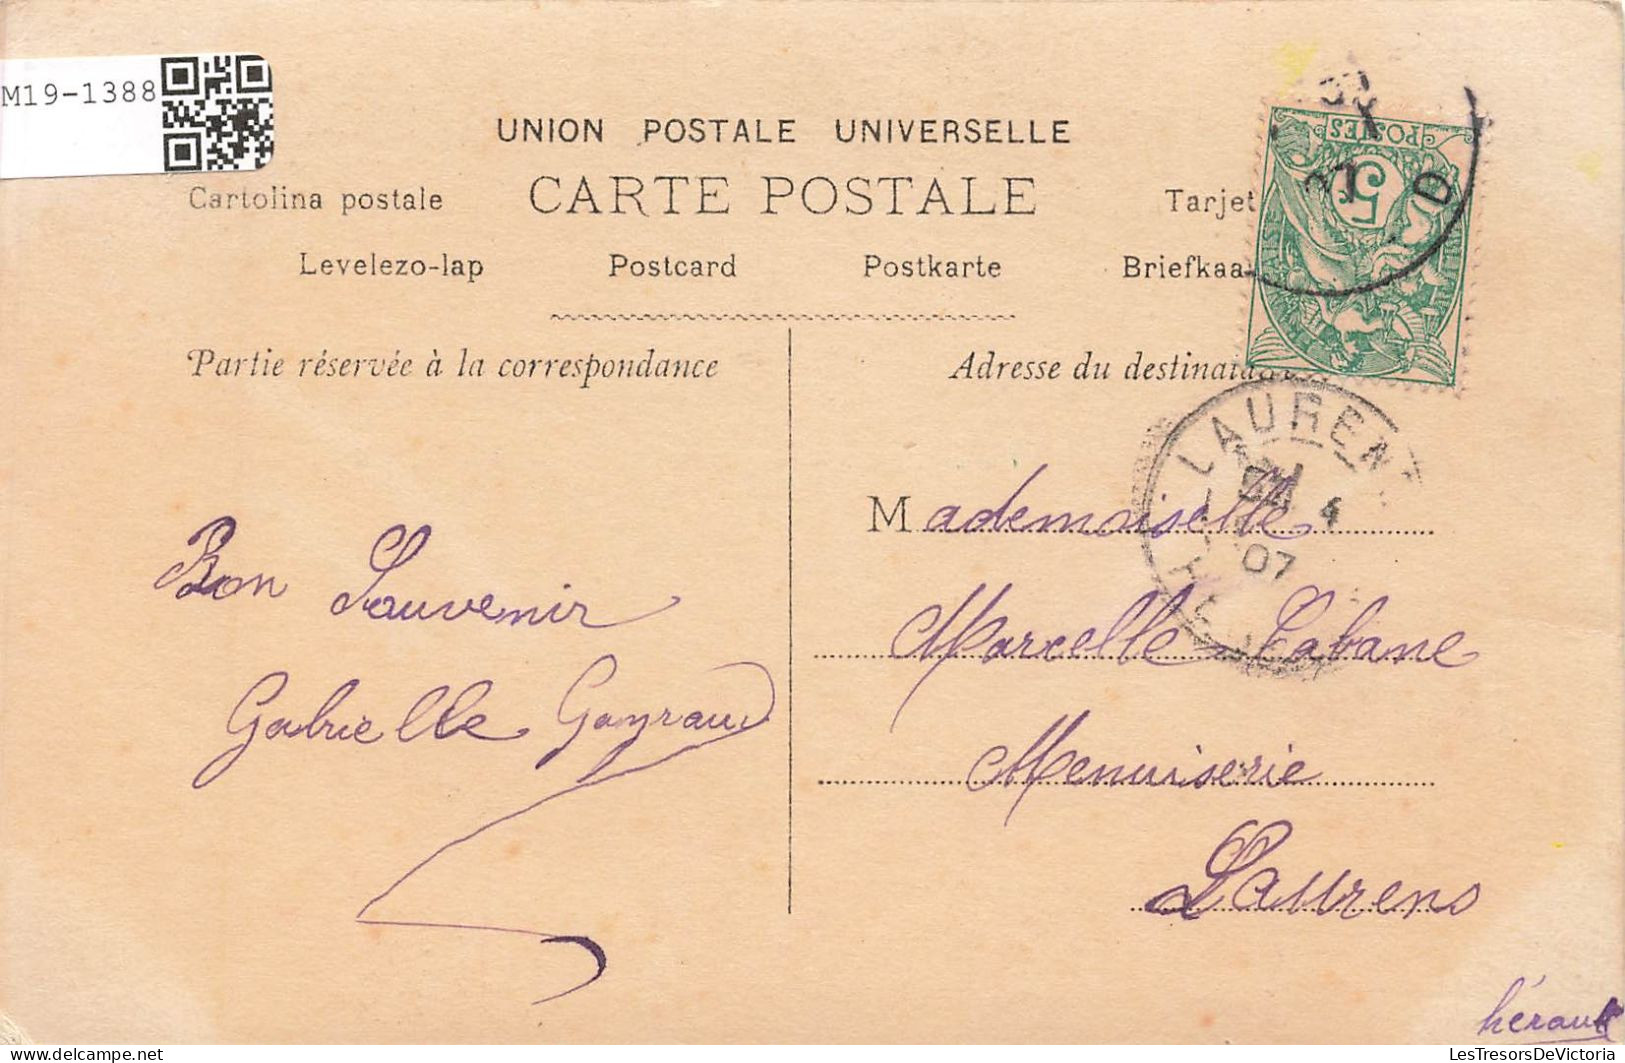 M19-1388
UNION POSTALE UNIVERSELLE
Cartolina postale CARTE POSTALE Tarjet
Levelezo-lap Postcard Postkarte Briefkaa
Partie réservée à la correspondance
Bon Souvenir
Gabrielle Gayraud
POSTES
5
Adresse du
LAURENS
4
07
Mademoiselle
Marcelle Cabane
Menuiserie
Laurens
hérault
LesTresorsDeVictoria